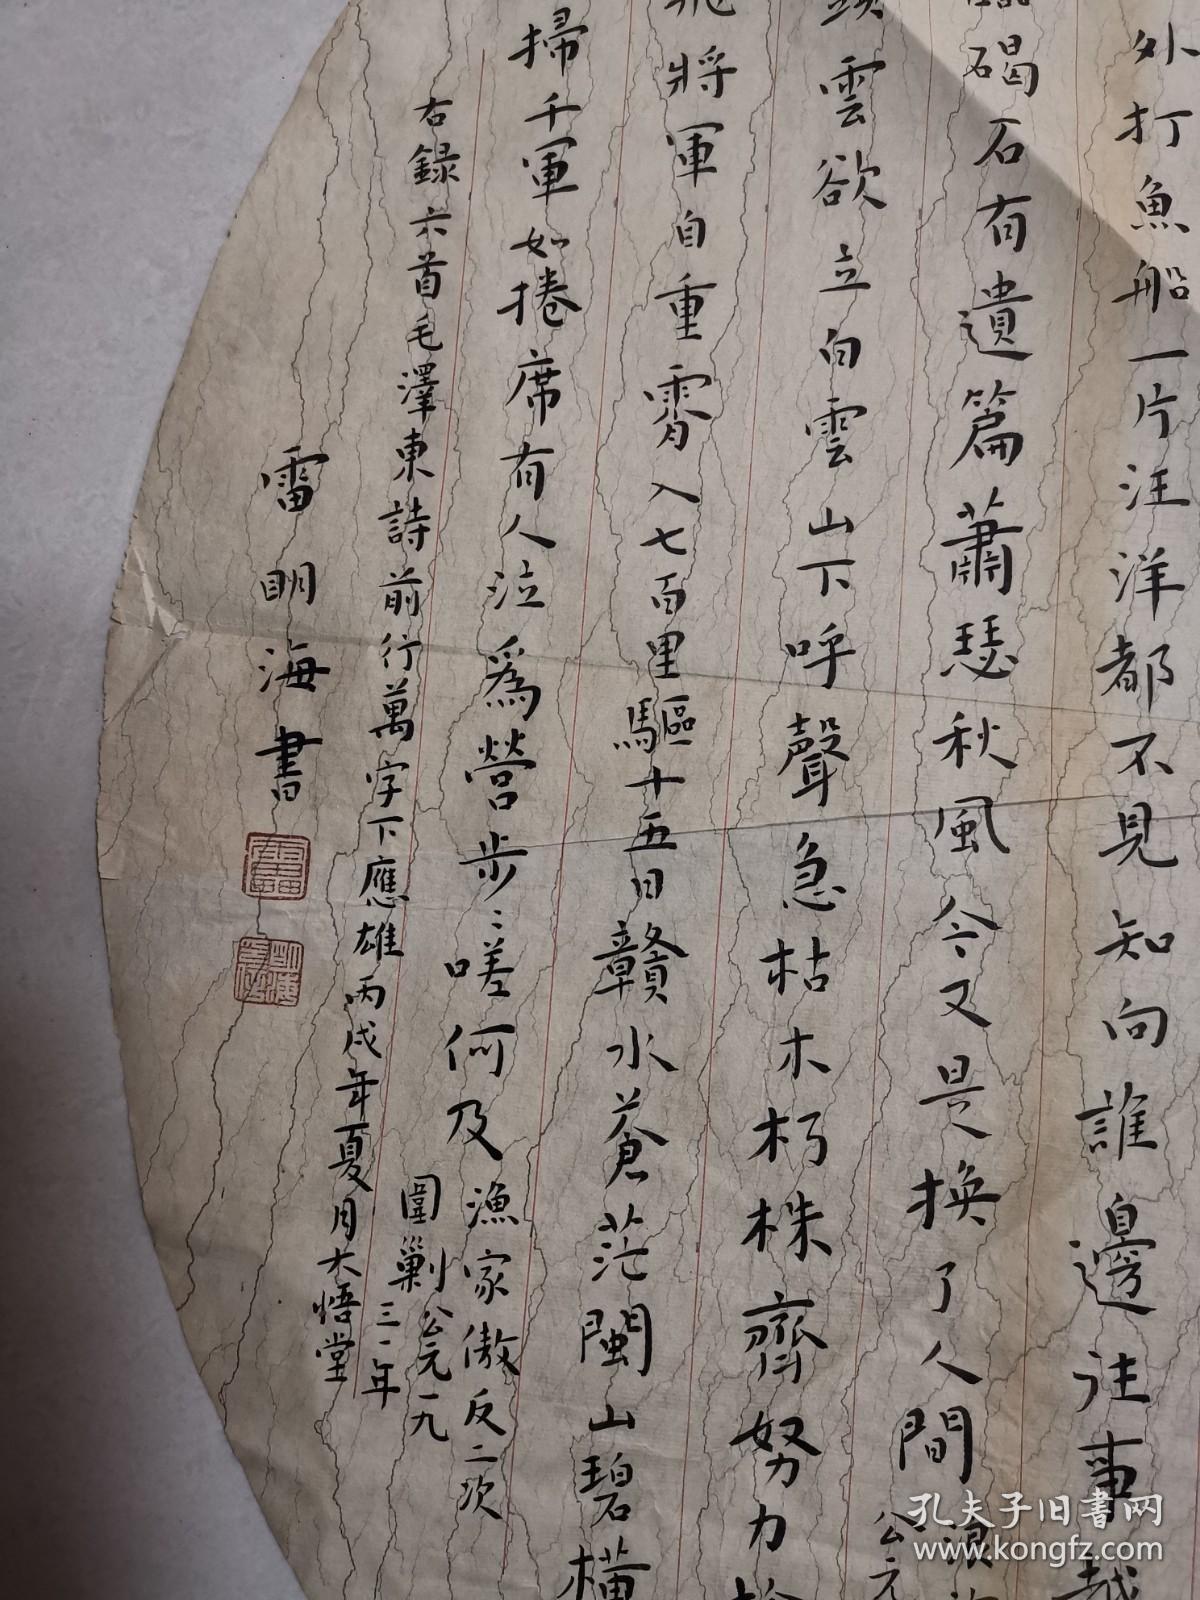 外打魚船一片汪洋都不見知向誰邊往事越
碣石有遺篇蕭瑟秋風今又是換了人間
公元
雲欲立白雲山下呼聲急枯木朽株齊努力
飛將軍自重霄入七百里驅十五日贛水蒼茫閩山碧橫
掃千軍如捲席有人泣為營步〻嗟何及
漁家傲反二次
圍剿公元一九
三一年
右錄六首毛澤東詩前行萬字下應雄丙戌年夏月大悟堂
雷明海書
孔夫子旧书网
www.kongfz.com